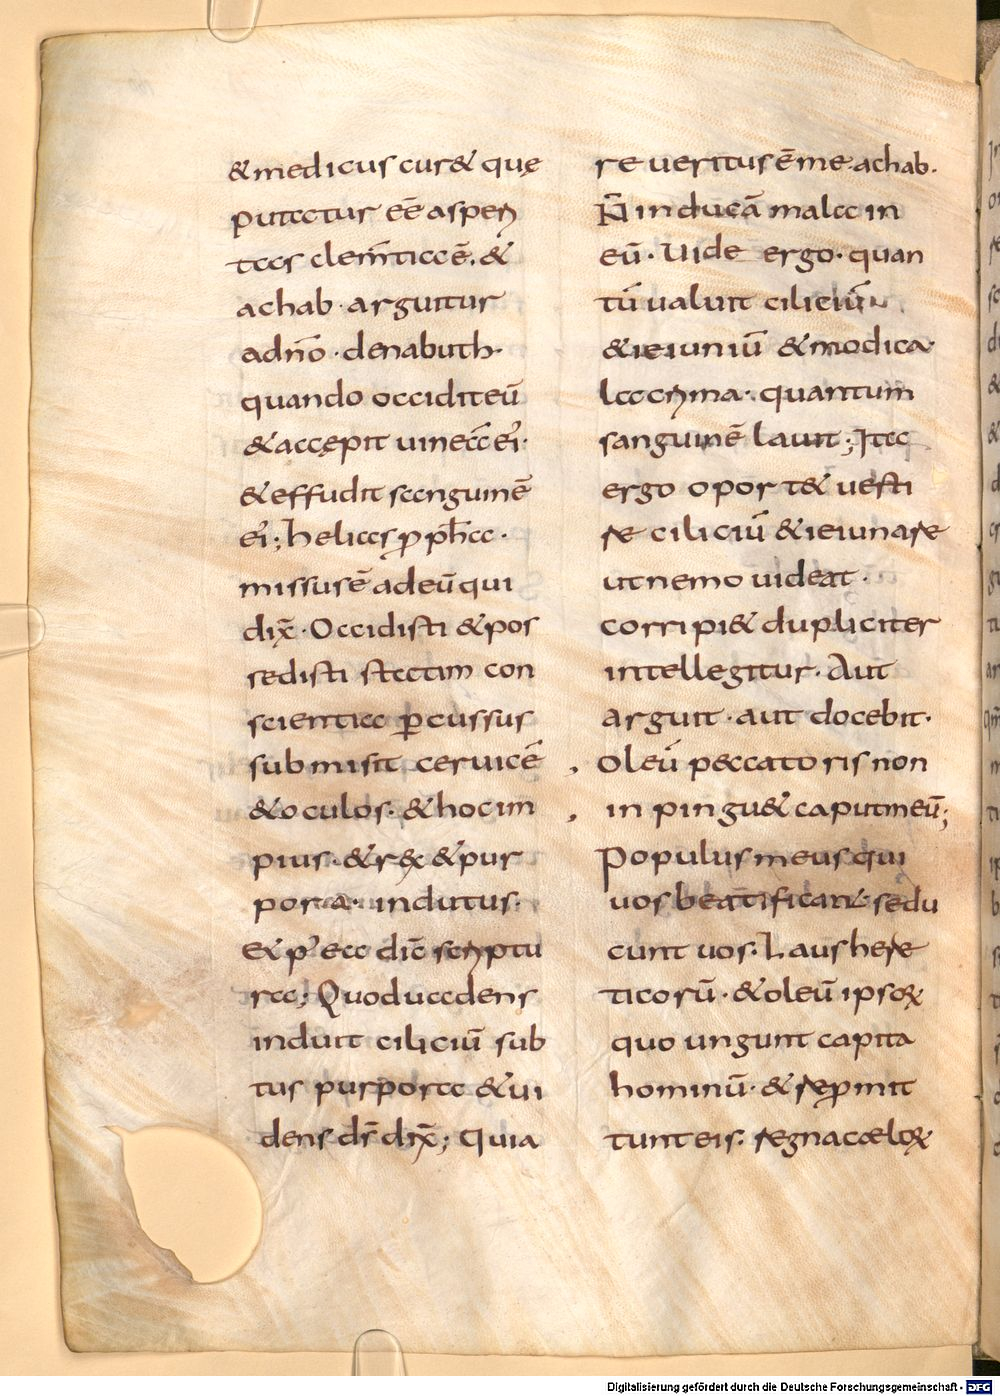 & medicus cur& quę
putatur eē asperi
tas clem̄tia ē. &
achab· arguitur
a dn̄o· de nabuth·
quando occidit eū
& accępit uineā ei·
& effudit sanguinē
ei; helias ꝓph̄a·
missus ē ad eū qui
dix̄· Occidisti & pos
sedisti statim con
scientia ꝑcussus
submisit ceruicē
& oculos· & hoc im
pius· & rex & pur
pora· indutus·
Et postea dic̄ scriptu
ra; Quod uadens
induit ciliciū sub
tus purpora & ui
dens ds̄ dix̄; Quia
reueritus ē me achab·
N̄ inducā mala in
eū· Uide ergo· quan
tū ualuit ciliciū
& ieiuniū & modica·
lacrima· quantum
sanguinē lauit; Ita
ergo oport& uesti
re ciliciū & ieiunare
ut nemo uideat·
corripi& dupliciter
intellegitur· Aut
arguit· aut docebit·
Oleū peccatoris non
inpingu& caput meū;
Populus meus qui
uos beatificant· sedu
cunt uos· Laus here
ticorū· & oleū ipsoꝝ
quo ungunt capita
hominū· & reꝓmit
tunt eis· regna cæloꝝ
Digitalisierung gefördert durch die Deutsche Forschungsgemeinschaft - DFG